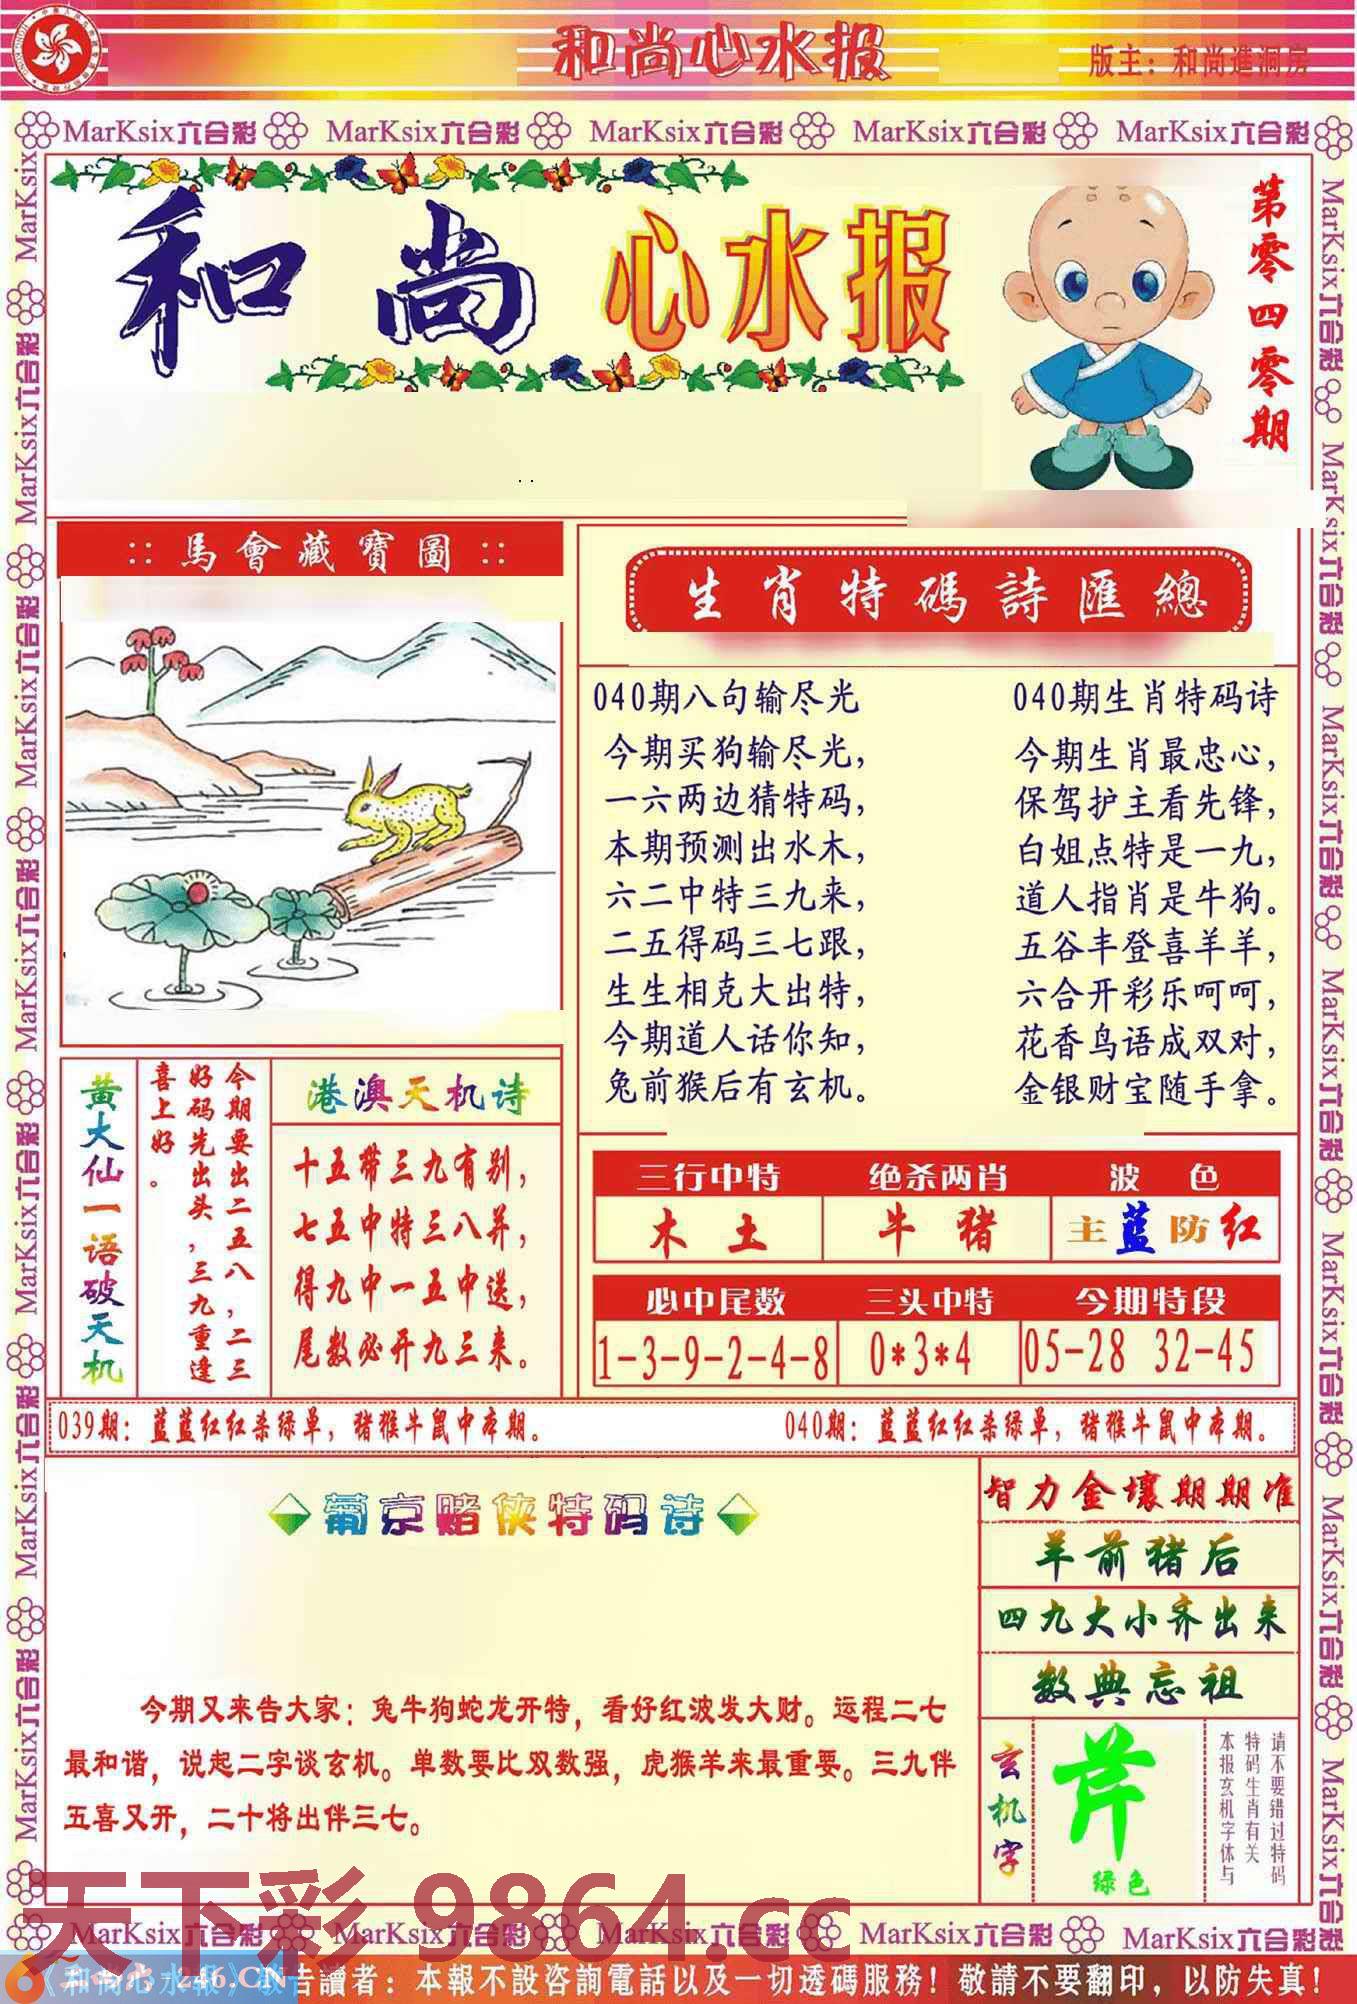 和尚心水报
版主：和尚進洞房
MarKsix六合彩 MarKsix六合彩 MarKsix六合彩 MarKsix六合彩 MarKsix六合彩
和尚心水报
第零四零期
:: 馬會藏寶圖 ::
生肖特碼詩匯總
040期八句输尽光
今期买狗输尽光，
一六两边猜特码，
本期预测出水木，
六二中特三九来，
二五得码三七跟，
生生相克大出特，
今期道人话你知，
兔前猴后有玄机。
040期生肖特码诗
今期生肖最忠心，
保驾护主看先锋，
白姐点特是一九，
道人指肖是牛狗。
五谷丰登喜羊羊，
六合开彩乐呵呵，
花香鸟语成双对，
金银财宝随手拿。
黄大仙一语破天机
今期要出二五八，二三
好码先出头，三九重逢
喜上好。
港澳天机诗
十五带三九有别，
七五中特三八并，
得九中一五中送，
尾数必开九三来。
三行中特 绝杀两肖 波色
木土 牛猪 主蓝防红
必中尾数 三头中特 今期特段
1-3-9-2-4-8 0*3*4 05-28 32-45
039期：蓝蓝红红杀绿单，猪猴牛鼠中本期。
040期：蓝蓝红红杀绿单，猪猴牛鼠中本期。
葡京赌侠特码诗
今期又来告大家；兔牛狗蛇龙开特，看好红波发大财。运程二七
最和谐，说起二字谈玄机。单数要比双数强，虎猴羊来最重要。三九伴
五喜又开，二十将出伴三七。
智力金壤期期准
羊前猪后
四九大小齐出来
数典忘祖
玄机字
芹
绿色
请不要错过特码
特码生肖有关
本报玄机字体与
天下彩 9864.cc
MarKsix六合彩 MarKsix六合彩 MarKsix六合彩 MarKsix六合彩 MarKsix六合彩
《和尚心水报》
246.CN
告讀者：本報不設咨詢電話以及一切透碼服務！敬請不要翻印，以防失真！